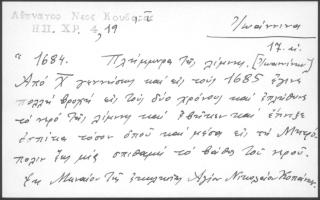 Ἀθηναγ. Νεος Κουβαρᾶς
ΗΠ. ΧΡ. 4, 19
Ἰωάννινα
17. αἰ.
" 1684. Πλήμμυρα τῆς λίμνης. [Ἰωαννίνων]
Ἀπὸ Χ γεννήσεως καὶ εἰς τοὺς 1685 ἔγινε
πολλὴ βροχὴ εἰς τοὺς δύο χρόνους καὶ ἐπλήθυνε
τὸ νερὸ τῆς λίμνης καὶ ἐβγῆκεν καὶ ἔπνιξε
ὀσπίτια τόσον ὁποῦ καὶ μέσα εἰς τὴ Μητρό-
πολιν ἕως μία σπιθαμὴ τὸ βάθος τοῦ νεροῦ.
Ἐκ Μηναίου τῆς ἐκκλησίας Ἁγίου Νικολάου Κοπάνων.